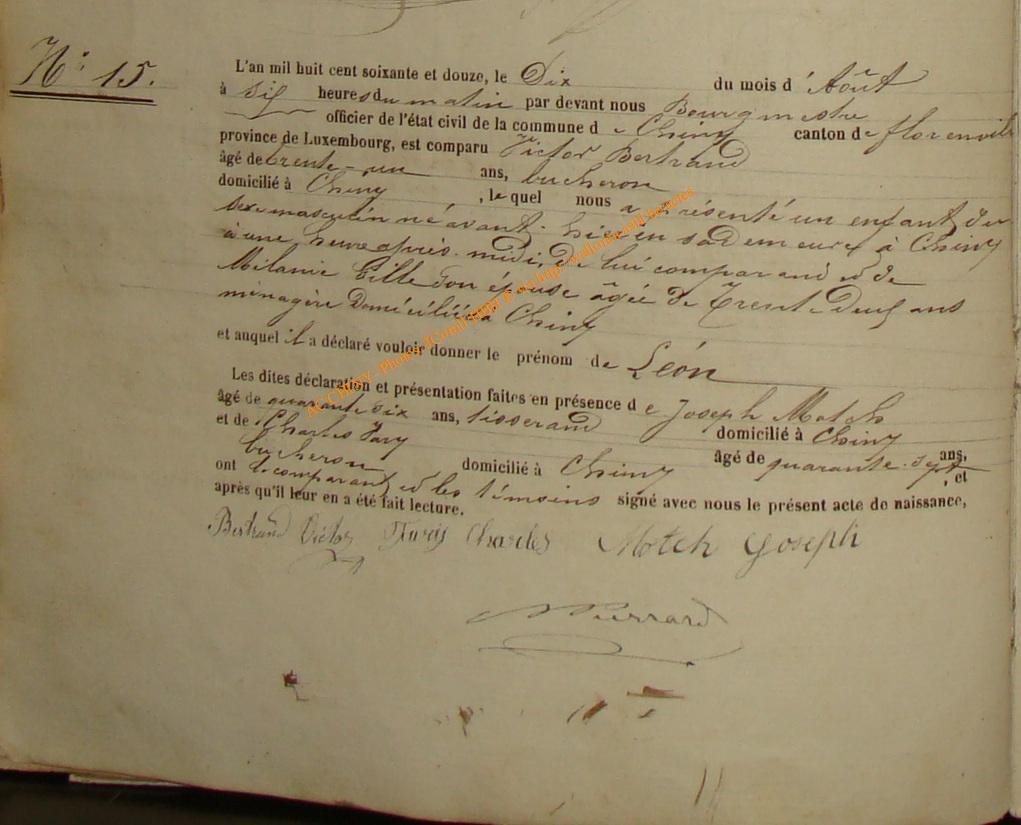 N° 15.
L'an mil huit cent soixante et douze, le Dix du mois d'Août
à six heures du matin par devant nous Bourgmestre
officier de l'état civil de la commune de Chiny canton de florenville
province de Luxembourg, est comparu Victor Bertrand
âgé de trente-un ans, bucheron
domicilié à Chiny, lequel nous a présenté un enfant du
sexe masculin né avant-hier en sa demeure à Chiny
à une heure après-midi, de lui comparant et de
Mélanie Gille son épouse âgée de Trente Deux ans
ménagère Domiciliée à Chiny
et auquel il a déclaré vouloir donner le prénom de Léon
Les dites déclaration et présentation faites en présence de Joseph Motch
âgé de quarante six ans, tisserand domicilié à Chiny
et de Charles âgé de quarante-sept ans,
bucheron domicilié à Chiny, et
ont le comparant et les témoins signé avec nous le présent acte de naissance,
après qu'il leur en a été fait lecture.
Bertrand Victor Charles Motch Joseph